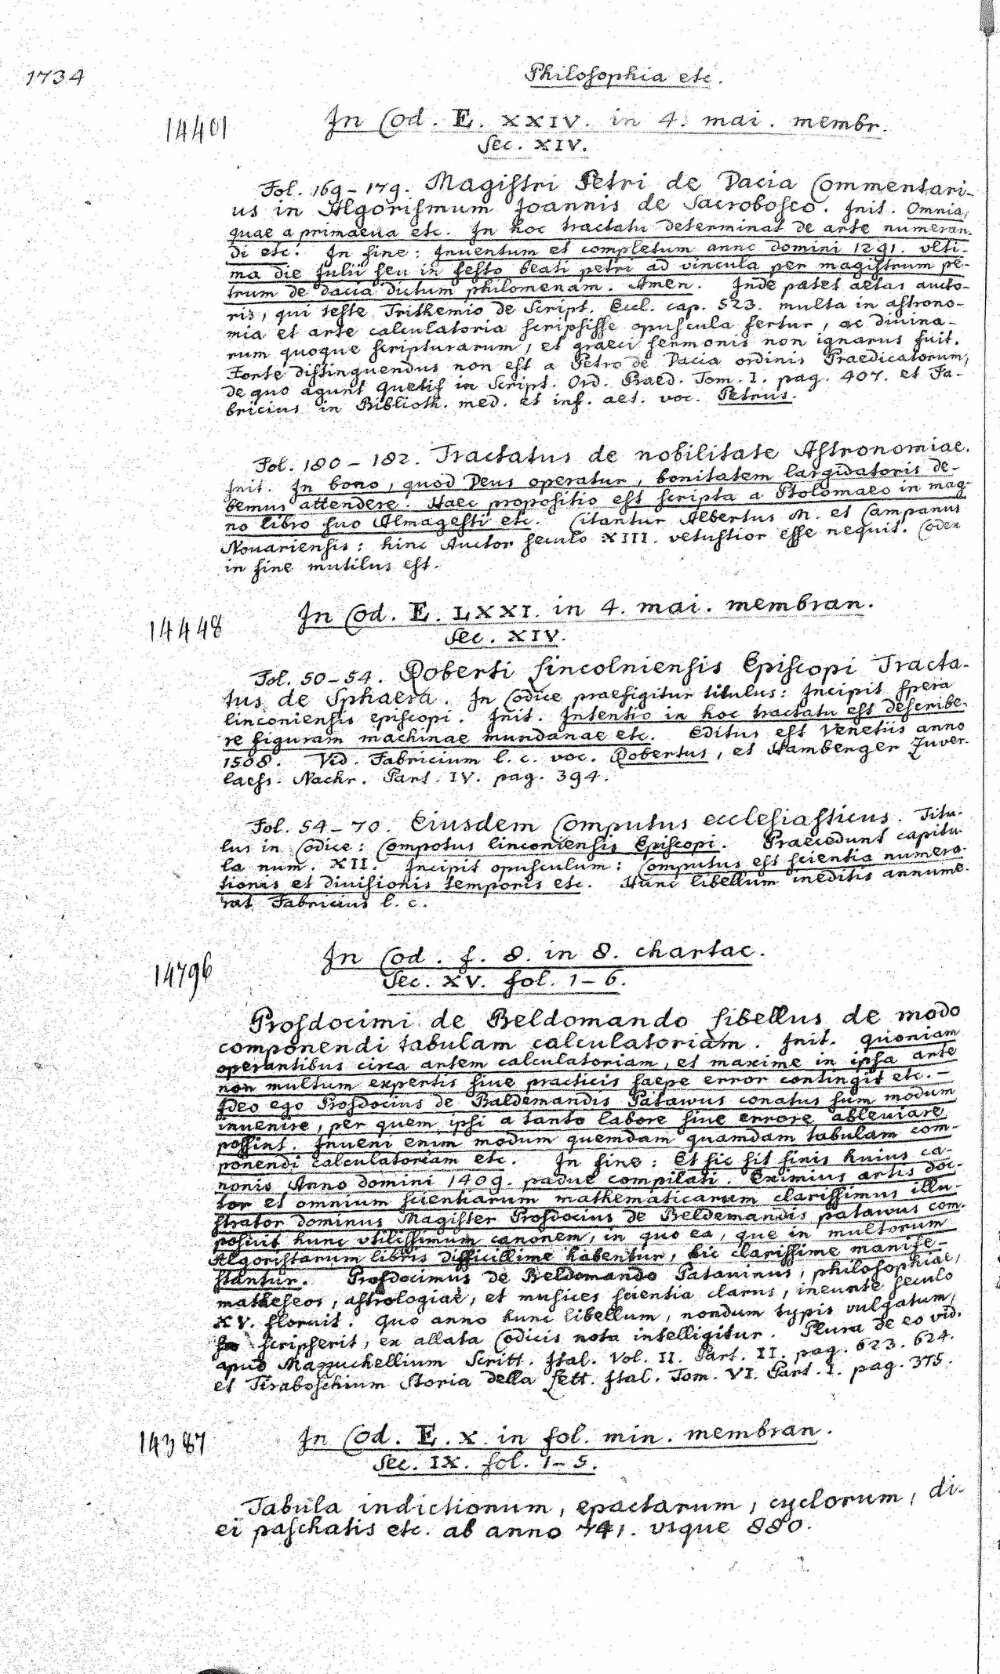 1734
Philosophia etc.
14401
In Cod. E. XXIV. in 4. mai. membr.
Sec. XIV.
Fol. 169-179. Magistri Petri de Dacia Commentari-
us in Algorismum Joannis de Sacrobosco. Init. Omnia,
quae a primaeva etc. In hoc tractatu determinat de arte numeran-
di etc. In fine: Inventum et completum anno domini 1291. ulti-
ma die Julii seu in festo beati petri ad vincula per magistrum pe-
trum de dacia dictum philomenam. Amen. Inde patet aetas aucto-
ris, qui teste Trithemio de Script. Eccl. cap. 523. multa in astrono-
mia et arte calculatoria scripsisse opuscula fertur, ac divina-
rum quoque scripturarum, et graeci sermonis non ignarus fuit.
Forte distinguendus non est a Petro de Dacia ordinis Praedicatorum,
de quo agunt Quetif in Script. Ord. Praed. Tom. I. pag. 407. et Fa-
bricius in Biblioth. med. et inf. aet. voc. Petrus.
Fol. 180-182. Tractatus de nobilitate Astronomiae.
Init. In bono, quod Deus operatur, bonitatem largidatoris de-
bemus attendere. Haec propositio est scripta a Ptolomaeo in mag-
no libro suo Almagesti etc. Citantur Albertus M. et Campanus
Novariensis: hinc Auctor seculo XIII. vetustior esse nequit. Codex
in fine mutilus est.
14448
In Cod. E. LXXI. in 4. mai. membran.
Sec. XIV.
Fol. 50-54. Roberti Lincolniensis Episcopi Tracta-
tus de Sphaera. In Codice praefigitur titulus: Incipit spera
linconiensis episcopi. Init. Intentio in hoc tractatu est describe-
re figuram machinae mundanae etc. Editus est Venetiis anno
1508. Vid. Fabricium l. c. voc. Robertus, et Hamberger Zuver-
laess. Nachr. Part. IV. pag. 394.
Fol. 54-70. Eiusdem Computus ecclesiasticus. Titu-
lus in Codice: Compotus linconiensis Episcopi. Praecedunt capitu-
la num. XII. Incipit opusculum: Computus est scientia numera-
tionis et divisionis temporis etc. Hunc libellum ineditis annume-
rat Fabricius l. c.
14796
In Cod. f. 8. in 8. chartac.
Sec. XV. fol. 1-6.
Prosdocimi de Beldomando Libellus de modo
componendi tabulam calculatoriam. Init. quoniam
operantibus circa artem calculatoriam, et maxime in ipsa arte
non multum expertis sive practicis saepe error contingit etc.-
Ideo ego Prosdocius de Baldemandis Patavus conatus sum modum
invenire, per quem ipsi a tanto labore sive errore ableviare
possint. Inveni enim modum quemdam quamdam tabulam com-
ponendi calculatoriam etc. In fine: Et sic sit finis huius ca-
nonis Anno domini 1409. padue compilati. Eximius artis doc-
tor et omnium scientiarum mathematicarum clarissimus illu-
strator dominus Magister Prosdocius de Beldemandis patavus com-
posuit hunc utilissimum canonem, in quo ea, que in multorum
Algoristarum libris difficillime habentur, hic clarissime manife-
stantur. Prosdocimus de Beldomando Patavinus, philosophiae,
matheseos, astrologiae, et musices scientia clarus, ineunte seculo
XV. floruit. Quo anno hunc libellum, nondum typis vulgatum,
scripserit, ex allata Codicis nota intelligitur. Plura de eo vid.
apud Mazzuchellium Scritt. Ital. Vol. II. Part. II. pag. 623. 624.
et Tiraboschium Storia della Lett. Ital. Tom. VI. Part. I. pag. 375.
14387
In Cod. E. X. in fol. min. membran.
Sec. IX. fol. 1-5.
Tabula indictionum, epactarum, cyclorum, di-
ei paschatis etc. ab anno 741. usque 880.